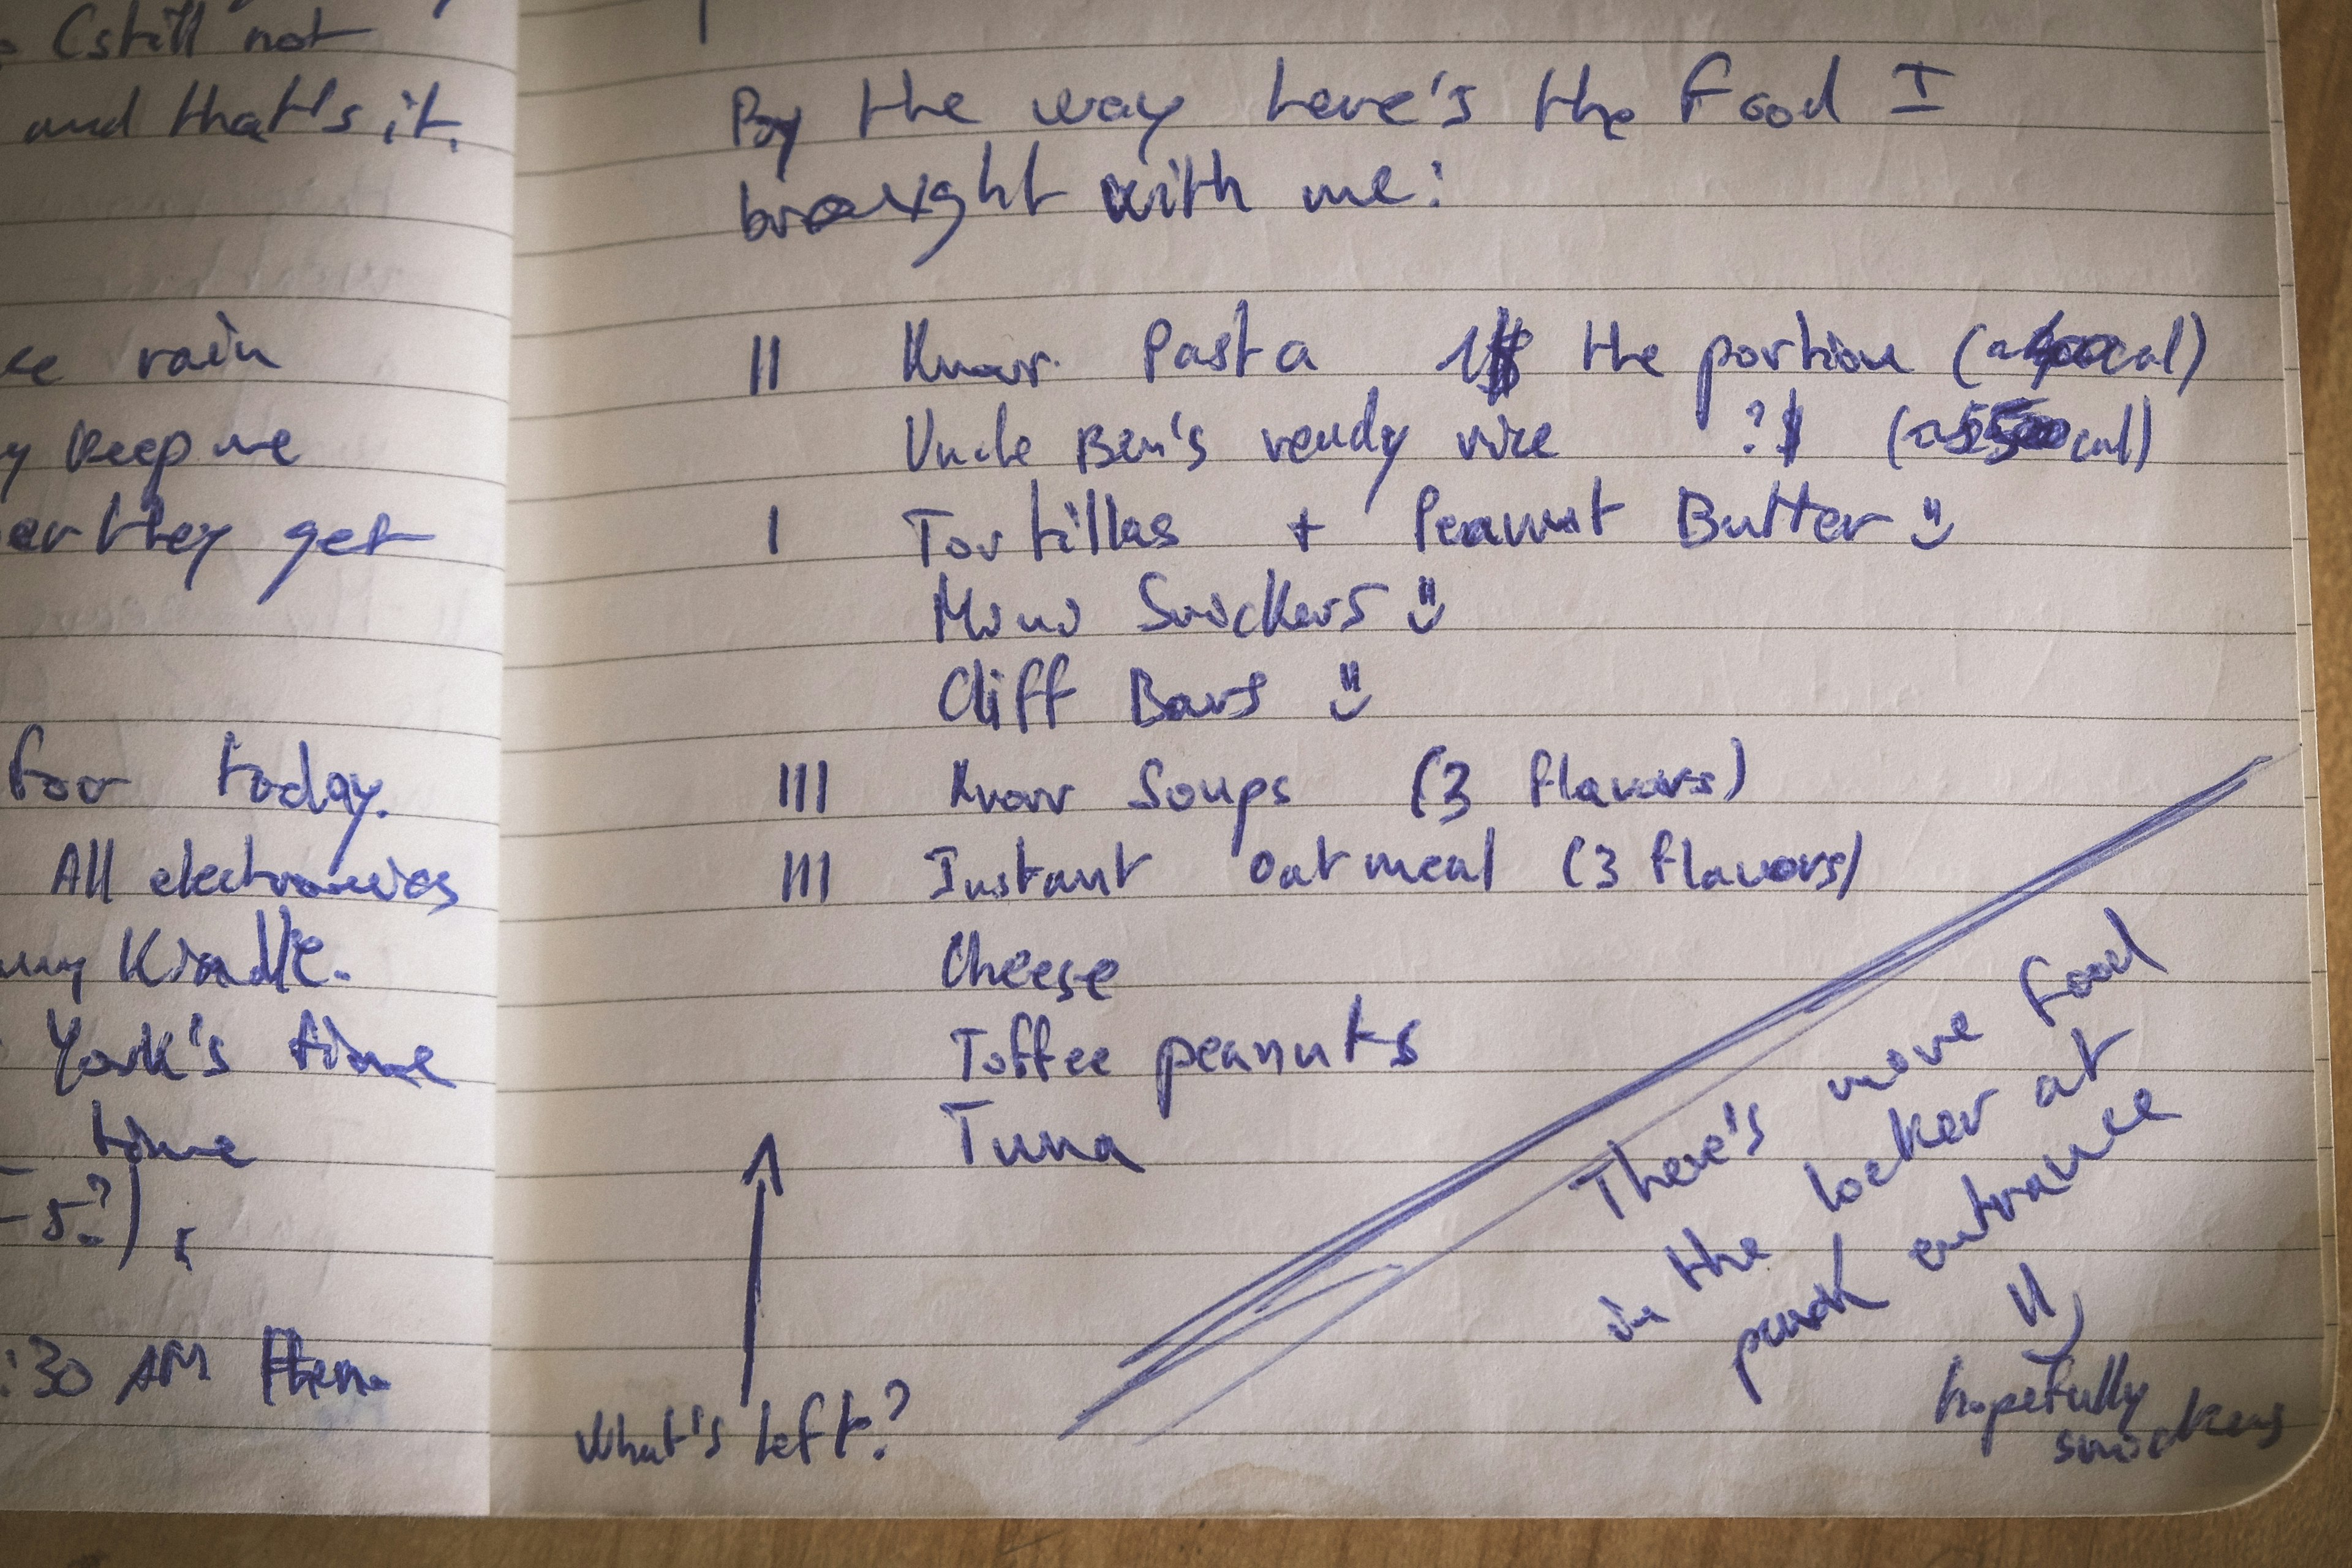 (still not
and that's it.
rain
keep me
they get
for today.
All electronics
my Kindle.
York's time
time
-5?),
:30 AM then
By the way here's the Food I
brought with me:
II Knorr Pasta 1$ the portion (cal)
Uncle Ben's ready rice ?$ (cal)
I Tortillas + Peanut Butter
Mini Snickers
Cliff Bars
III Knorr Soups (3 flavors)
III Instant oatmeal (3 flavors)
Cheese
Toffee peanuts
Tuna
What's left?
There's more Food
in the locker at
park entrance
hopefully
snickers